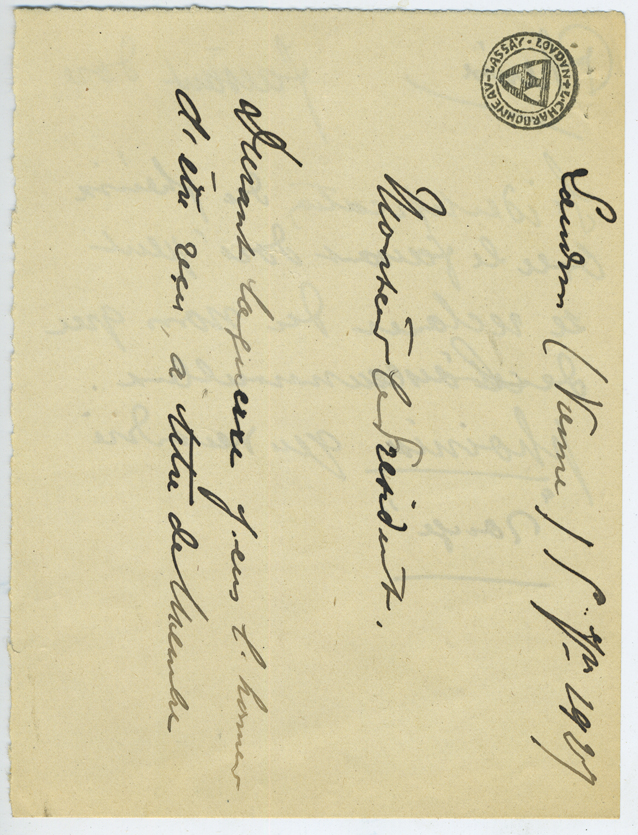 L. CHARBONNEAV - LASSAY - LOVDVN +
Loudun (Vienne) 5 7bre 1927
Monsieur le President.
Durant la guerre j'eus l'honneur
d'être reçu, à titre de Membre